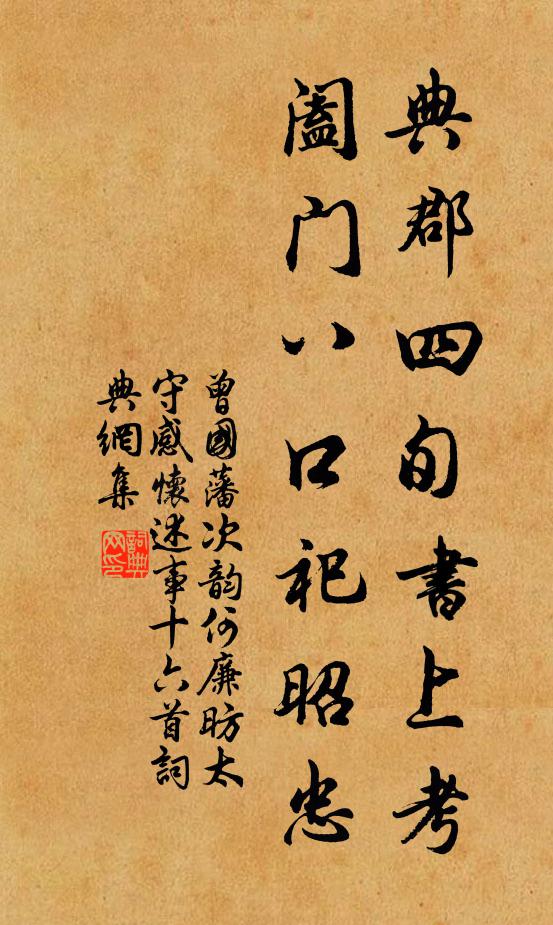 典郡四旬書上考
闔門八口祀昭忠
曾國藩次韵何廉昉太
守感懷述事十六首詞
典網集
詞典
网印